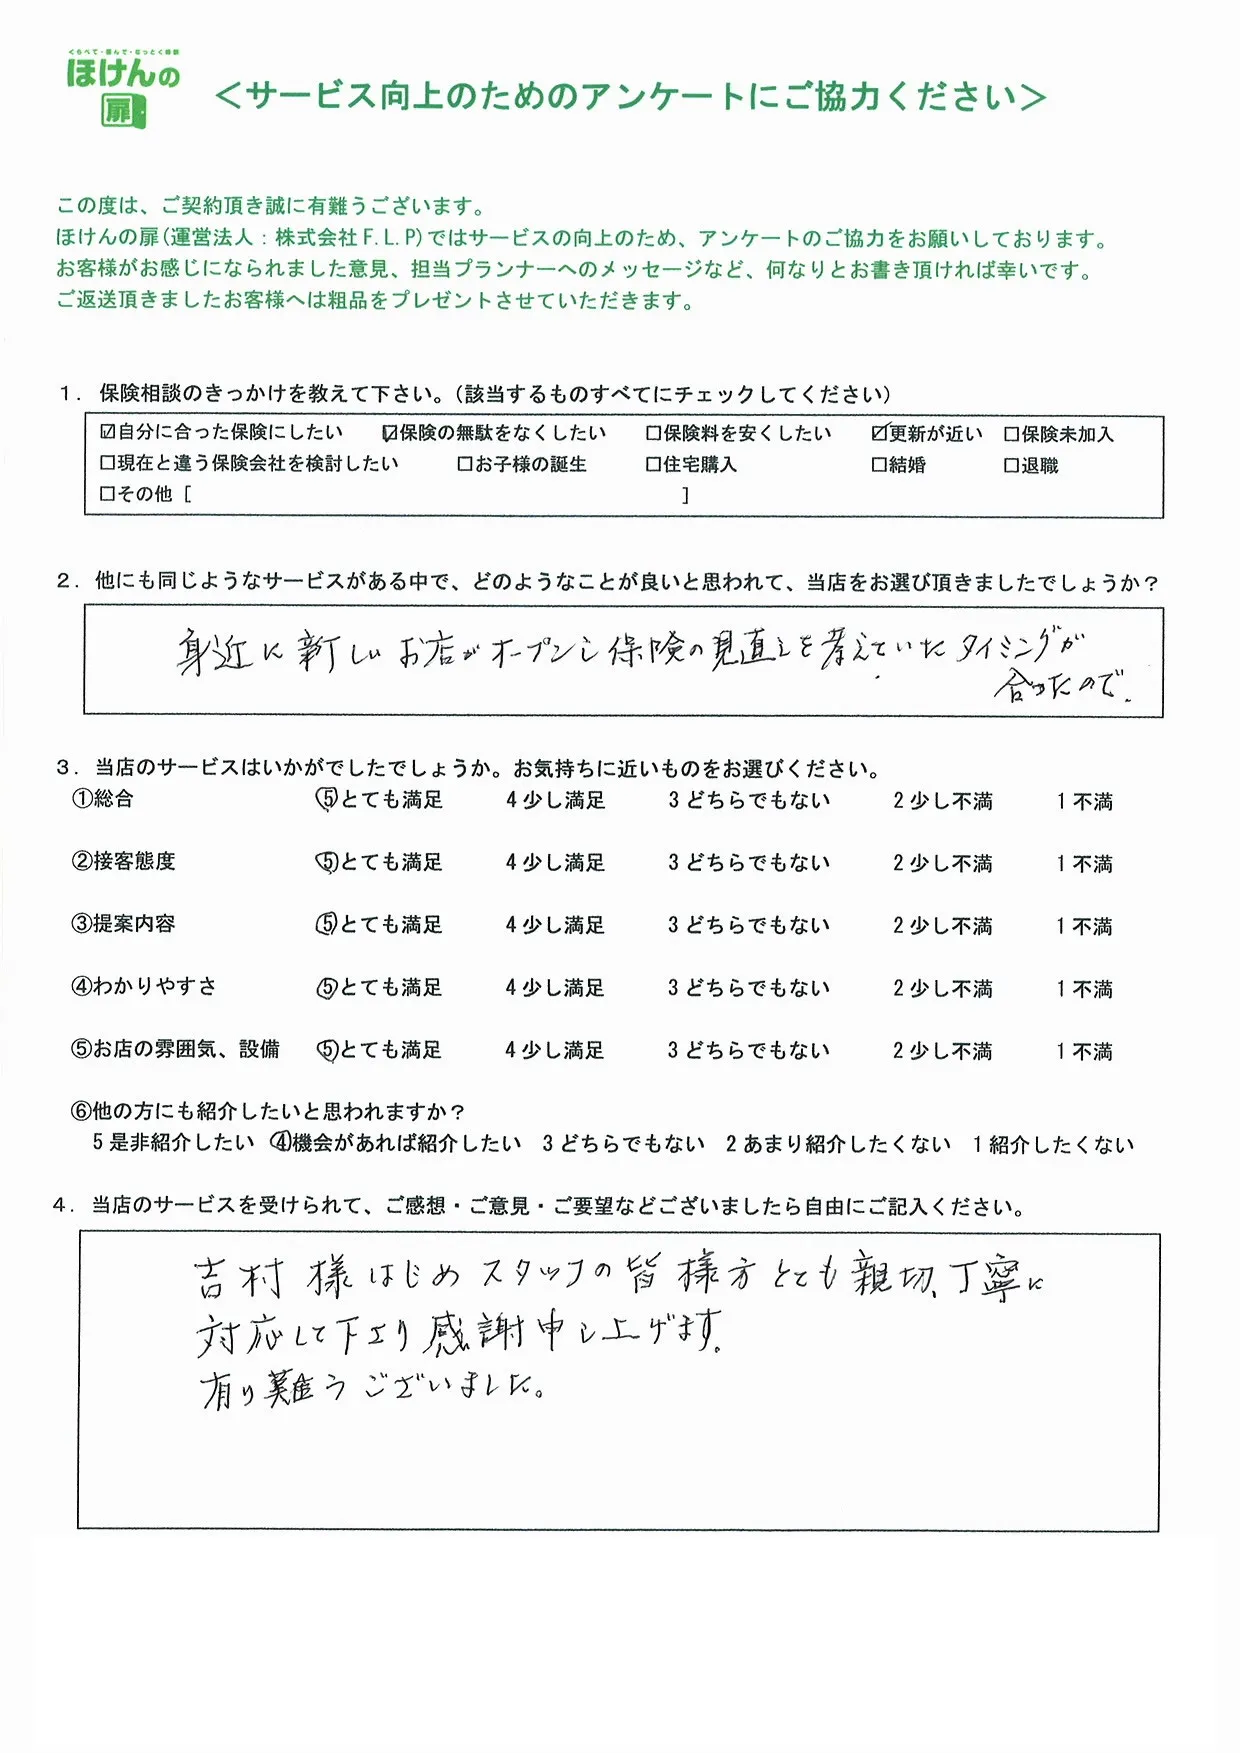 くらべて・選んで・なっとく保険
ほけんの
扉
＜サービス向上のためのアンケートにご協力ください＞
この度は、ご契約頂き誠に有難うございます。
ほけんの扉(運営法人：株式会社F.L.P)ではサービスの向上のため、アンケートのご協力をお願いしております。
お客様がお感じになられました意見、担当プランナーへのメッセージなど、何なりとお書き頂ければ幸いです。
ご返送頂きましたお客様へは粗品をプレゼントさせていただきます。
１．保険相談のきっかけを教えて下さい。(該当するものすべてにチェックしてください)
☑自分に合った保険にしたい ☑保険の無駄をなくしたい □保険料を安くしたい ☑更新が近い □保険未加入
□現在と違う保険会社を検討したい □お子様の誕生 □住宅購入 □結婚 □退職
□その他［ ］
２．他にも同じようなサービスがある中で、どのようなことが良いと思われて、当店をお選び頂きましたでしょうか？
身近に新しいお店がオープンし保険の見直しを考えていたタイミングが
合ったので.
３．当店のサービスはいかがでしたでしょうか。お気持ちに近いものをお選びください。
①総合 ⑤とても満足 4少し満足 3どちらでもない 2少し不満 1不満
②接客態度 ⑤とても満足 4少し満足 3どちらでもない 2少し不満 1不満
③提案内容 ⑤とても満足 4少し満足 3どちらでもない 2少し不満 1不満
④わかりやすさ ⑤とても満足 4少し満足 3どちらでもない 2少し不満 1不満
⑤お店の雰囲気、設備 ⑤とても満足 4少し満足 3どちらでもない 2少し不満 1不満
⑥他の方にも紹介したいと思われますか？
5是非紹介したい ④機会があれば紹介したい 3どちらでもない 2あまり紹介したくない 1紹介したくない
４．当店のサービスを受けられて、ご感想・ご意見・ご要望などございましたら自由にご記入ください。
吉村様はじめスタッフの皆様方とても親切、丁寧に
対応して下さり感謝申し上げます。
有り難うございました。